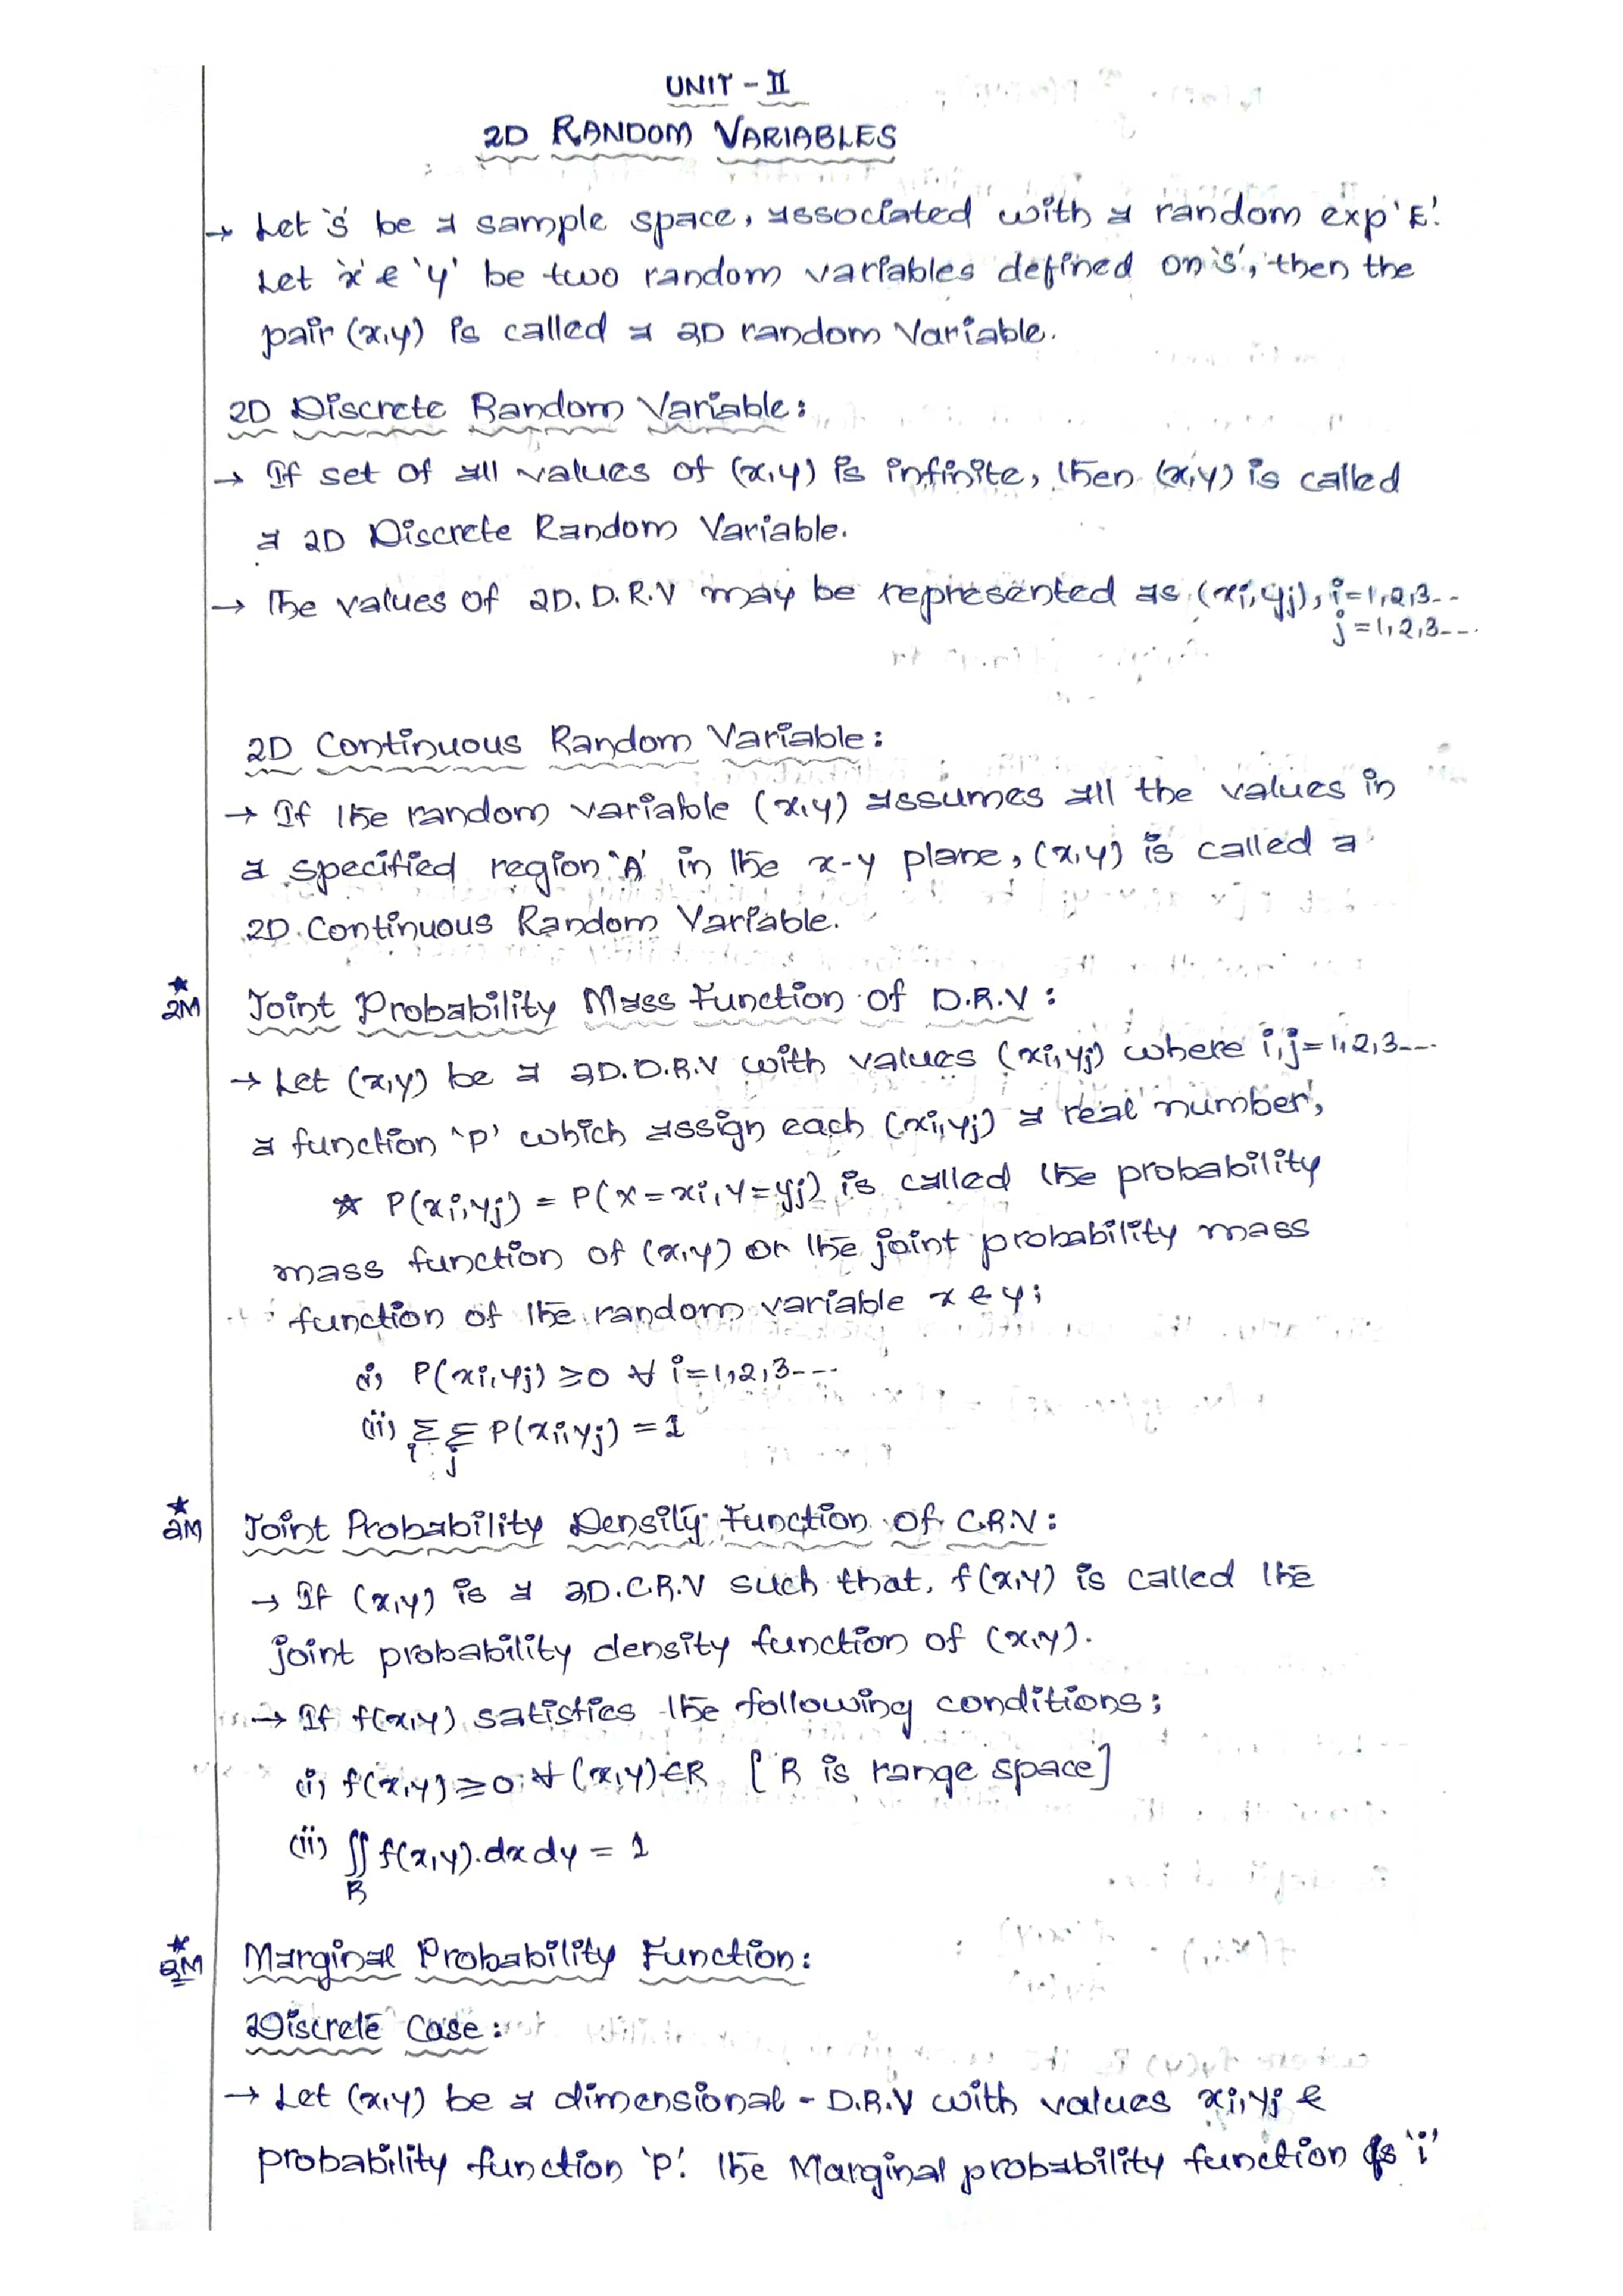 UNIT - II
2D RANDOM VARIABLES
→ Let 's' be a sample space, associated with a random exp 'E'.
Let 'x' & 'y' be two random variables defined on 's', then the
pair (x,y) is called a 2D random Variable.
2D Discrete Random Variable:
→ If set of all values of (x,y) is infinite, then (x,y) is called
a 2D Discrete Random Variable.
→ The values of 2D.D.R.V may be represented as (xi,yj), i=1,2,3--
j=1,2,3---
2D Continuous Random Variable:
→ If the random variable (x,y) assumes all the values in
a specified region 'A' in the x-y plane, (x,y) is called a
2D Continuous Random Variable.
★
2M Joint Probability Mass Function of D.R.V:
→ Let (x,y) be a 2D.D.R.V with values (xi,yj) where i,j=1,2,3---
a function 'p' which assign each (xi,yj) a real number,
★ P(xi,yj) = P(X=xi,Y=yj) is called the probability
mass function of (x,y) or the joint probability mass
function of the random variable x & y;
(i) P(xi,yj) ≥0 ∀ i=1,2,3---
(ii) Σi Σj P(xi,yj) = 1
★
2M Joint Probability Density Function of C.R.V:
→ If (x,y) is a 2D.C.R.V such that, f(x,y) is called the
joint probability density function of (x,y).
→ If f(x,y) satisfies the following conditions;
(i) f(x,y) ≥0 ∀ (x,y)∈R [R is range space]
(ii) ∬ f(x,y).dxdy = 1
R
★
2M Marginal Probability Function:
Discrete Case:
→ Let (x,y) be a dimensional - D.R.V with values xi,yj &
probability function 'p'. The Marginal probability function is 'i'